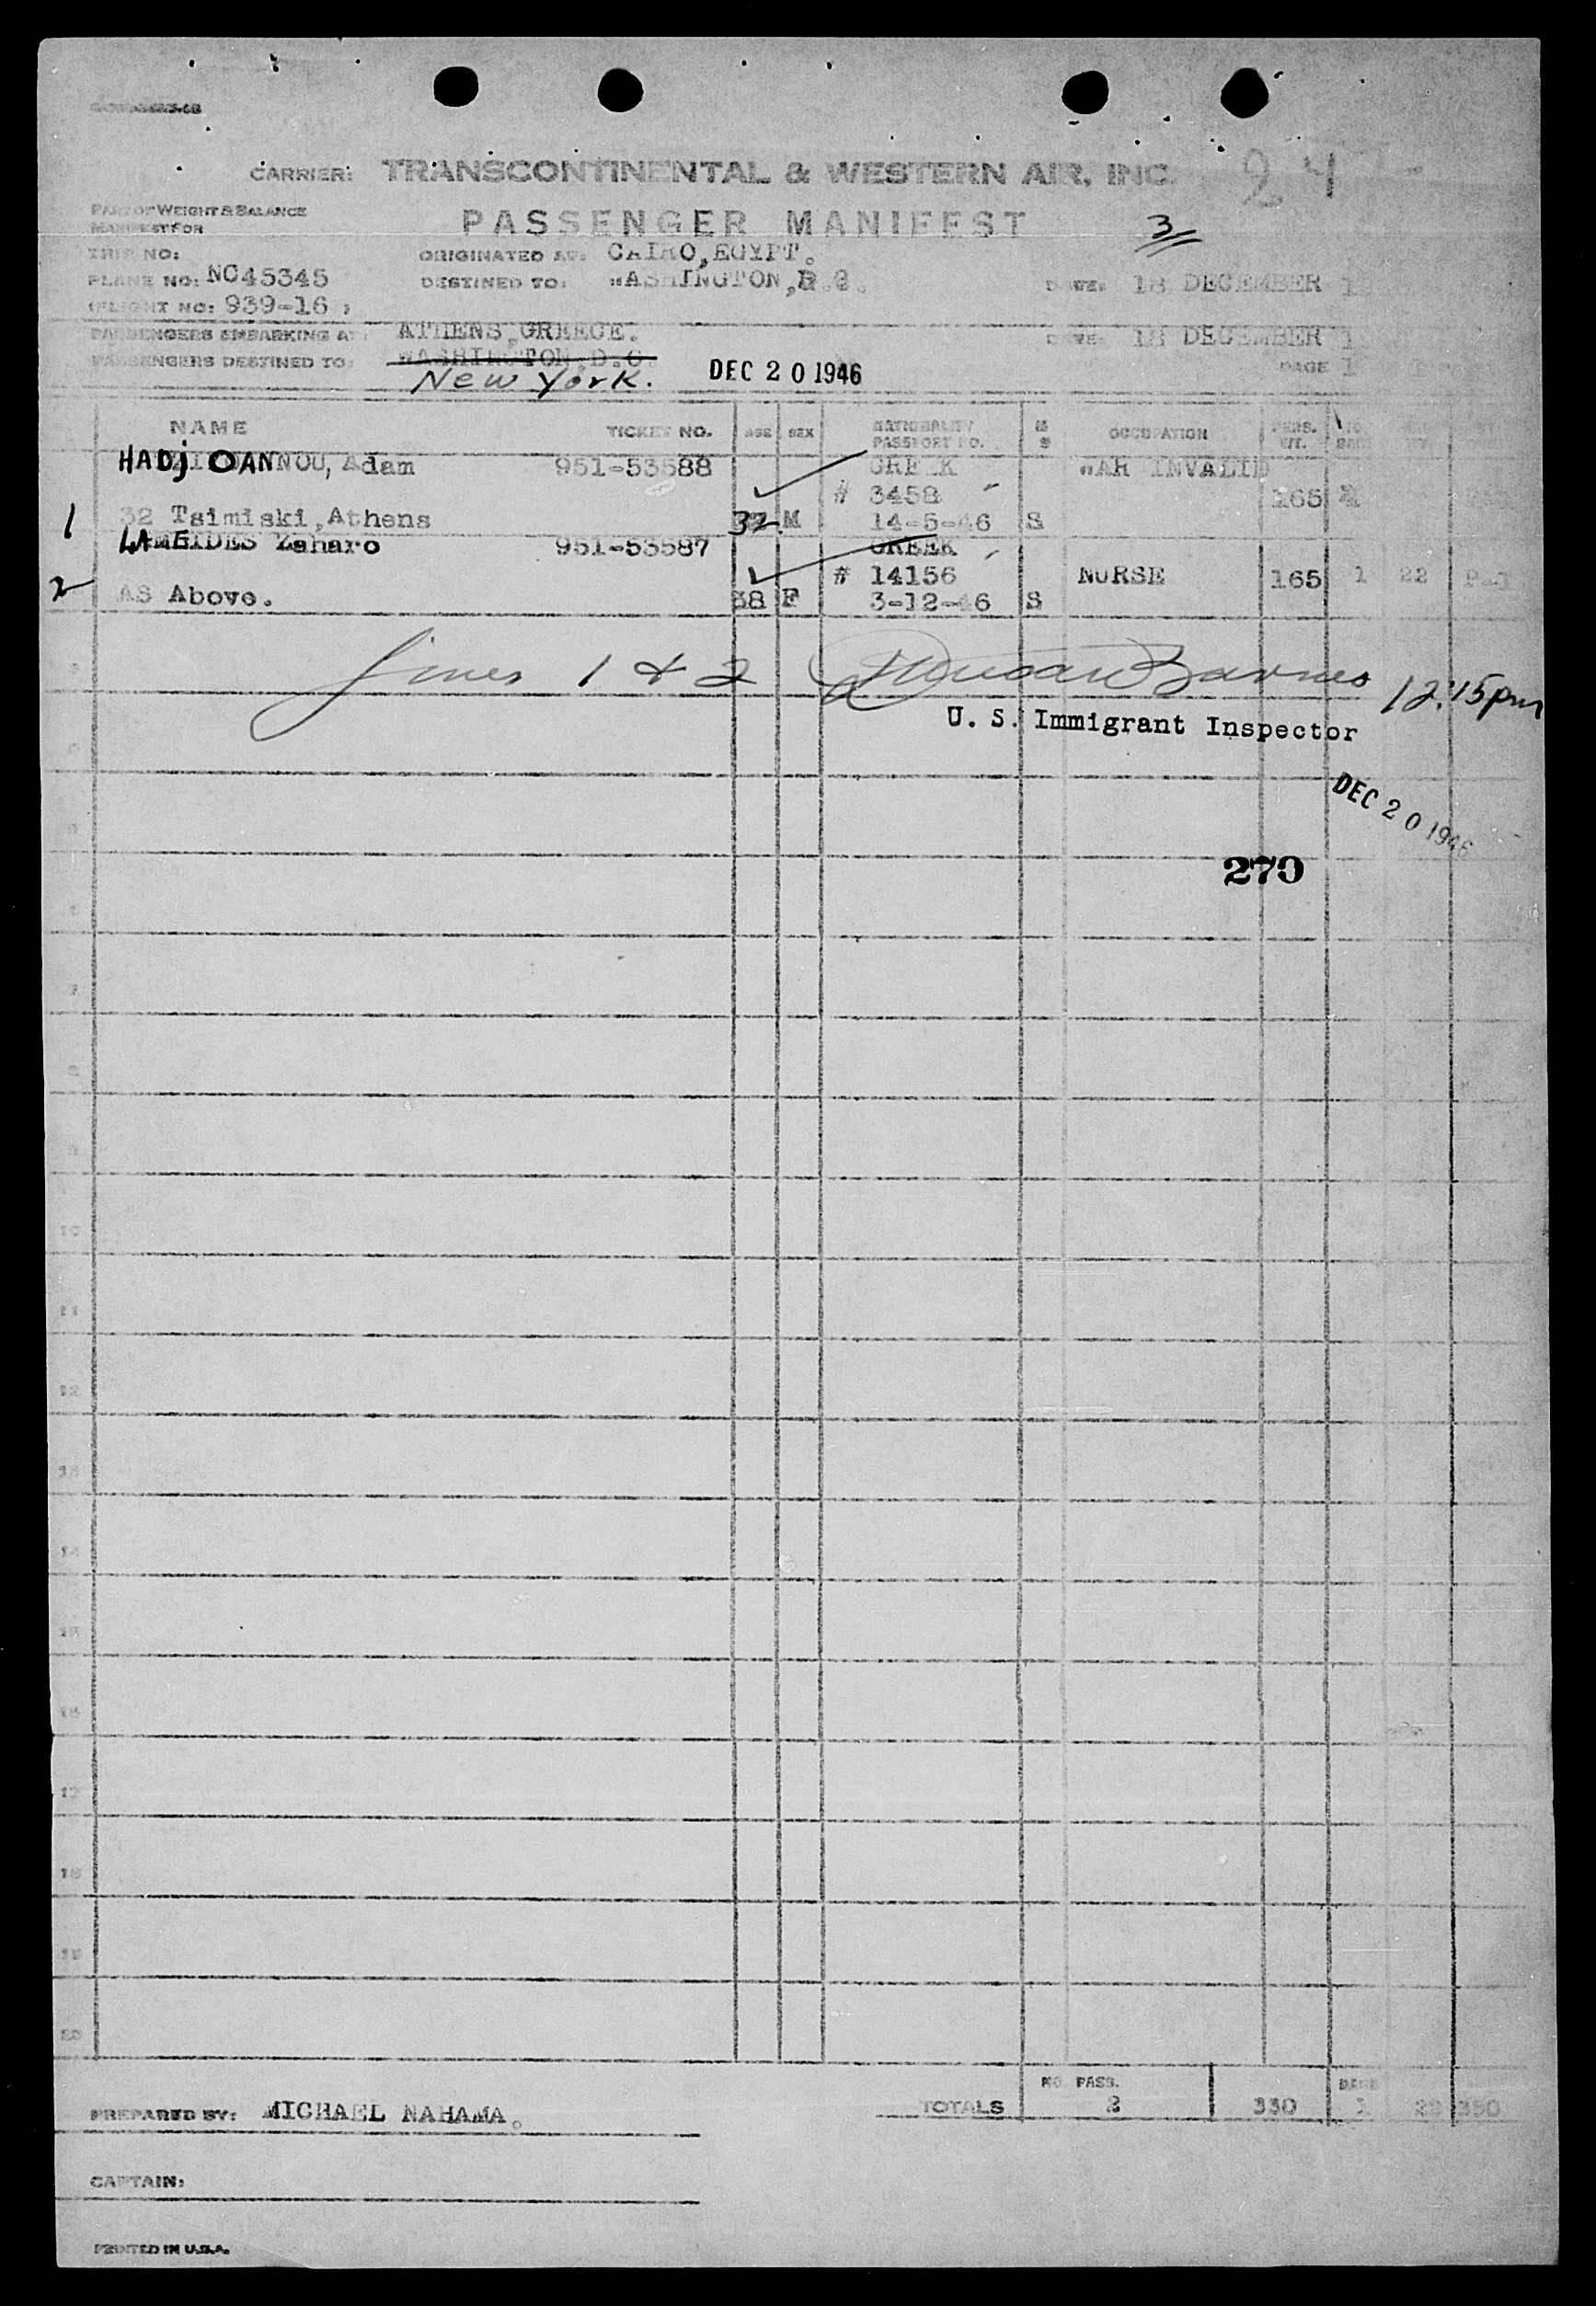 CARRIER: TRANSCONTINENTAL & WESTERN AIR, INC.
24
PART OF WEIGHT & BALANCE
MANIFEST FOR
PASSENGER MANIFEST
3
TRIP NO:
ORIGINATED AT: CAIRO, EGYPT.
PLANE NO: NC45345
DESTINED TO: WASHINGTON, D.C.
DATE: 18 DECEMBER
FLIGHT NO: 939-16
PASSENGERS EMBARKING AT: ATHENS, GREECE.
DATE: 18 DECEMBER
PASSENGERS DESTINED TO: WASHINGTON, D.C.
PAGE 1
New York.
DEC 20 1946
NAME TICKET NO. AGE SEX NATIONALITY PASSPORT NO. M S OCCUPATION PERS. WT.
HADjIOANNOU, Adam 951-53588 GREEK WAR INVALID
# 3458 165
1 32 Tsimiski, Athens 32 M 14-5-46 S
LAMEIDES Zaharo 951-53587 GREEK
# 14156 NURSE 165 1 22
2 AS Above. 38 F 3-12-46 S
3 Lines 1 & 2 Barnes 12:15pm
U. S. Immigrant Inspector
4
DEC 20 1946
5
279
6
7
8
9
10
11
12
13
14
15
16
17
18
19
20
NO. PASS.
PREPARED BY: MICHAEL NAHAMA.
TOTALS 2 330 1 22
CAPTAIN:
PRINTED IN U.S.A.